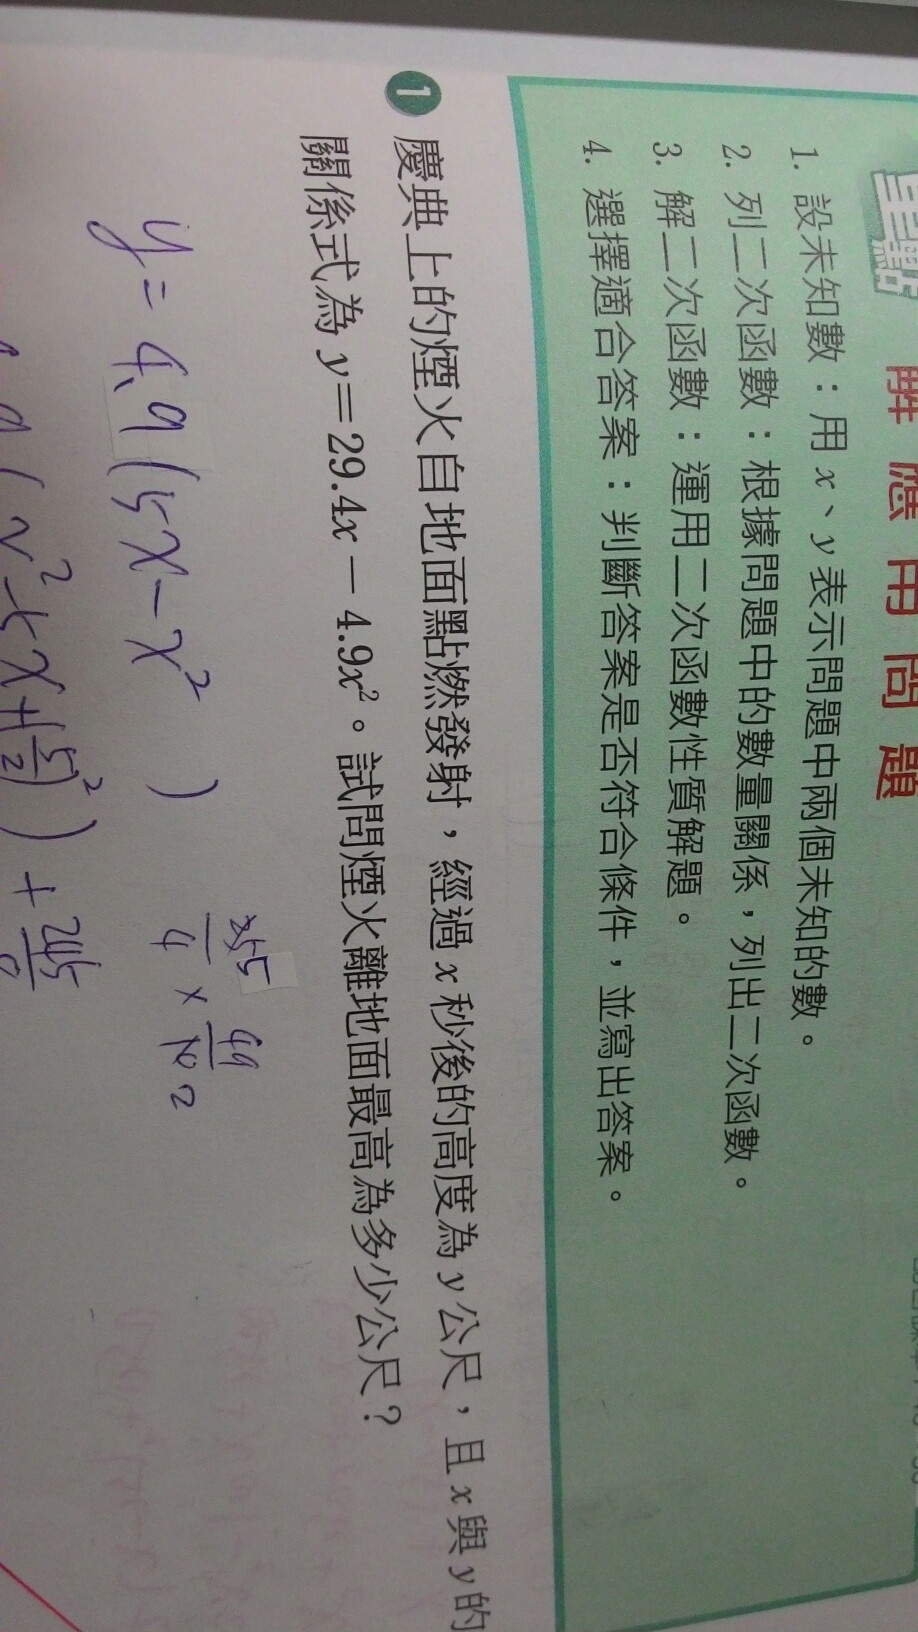 重點 解應用問題
1. 設未知數：用 x、y 表示問題中兩個未知的數。
2. 列二次函數：根據問題中的數量關係，列出二次函數。
3. 解二次函數：運用二次函數性質解題。
4. 選擇適合答案：判斷答案是否符合條件，並寫出答案。
1 慶典上的煙火自地面點燃發射，經過 x 秒後的高度為 y 公尺，且 x 與 y 的
關係式為 y＝29.4x－4.9x²。試問煙火離地面最高為多少公尺？
y = 4.9 (5x - x² )